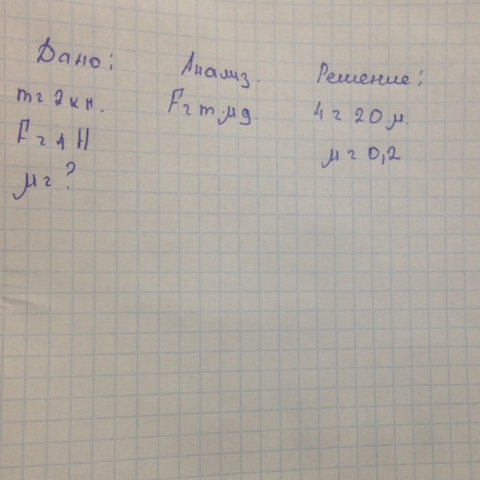 Дано:
m = 2 кн.
F = 4 Н
μ = ?
Анализ.
F = m·μg.
Решение:
4 = 20 μ.
μ = 0,2